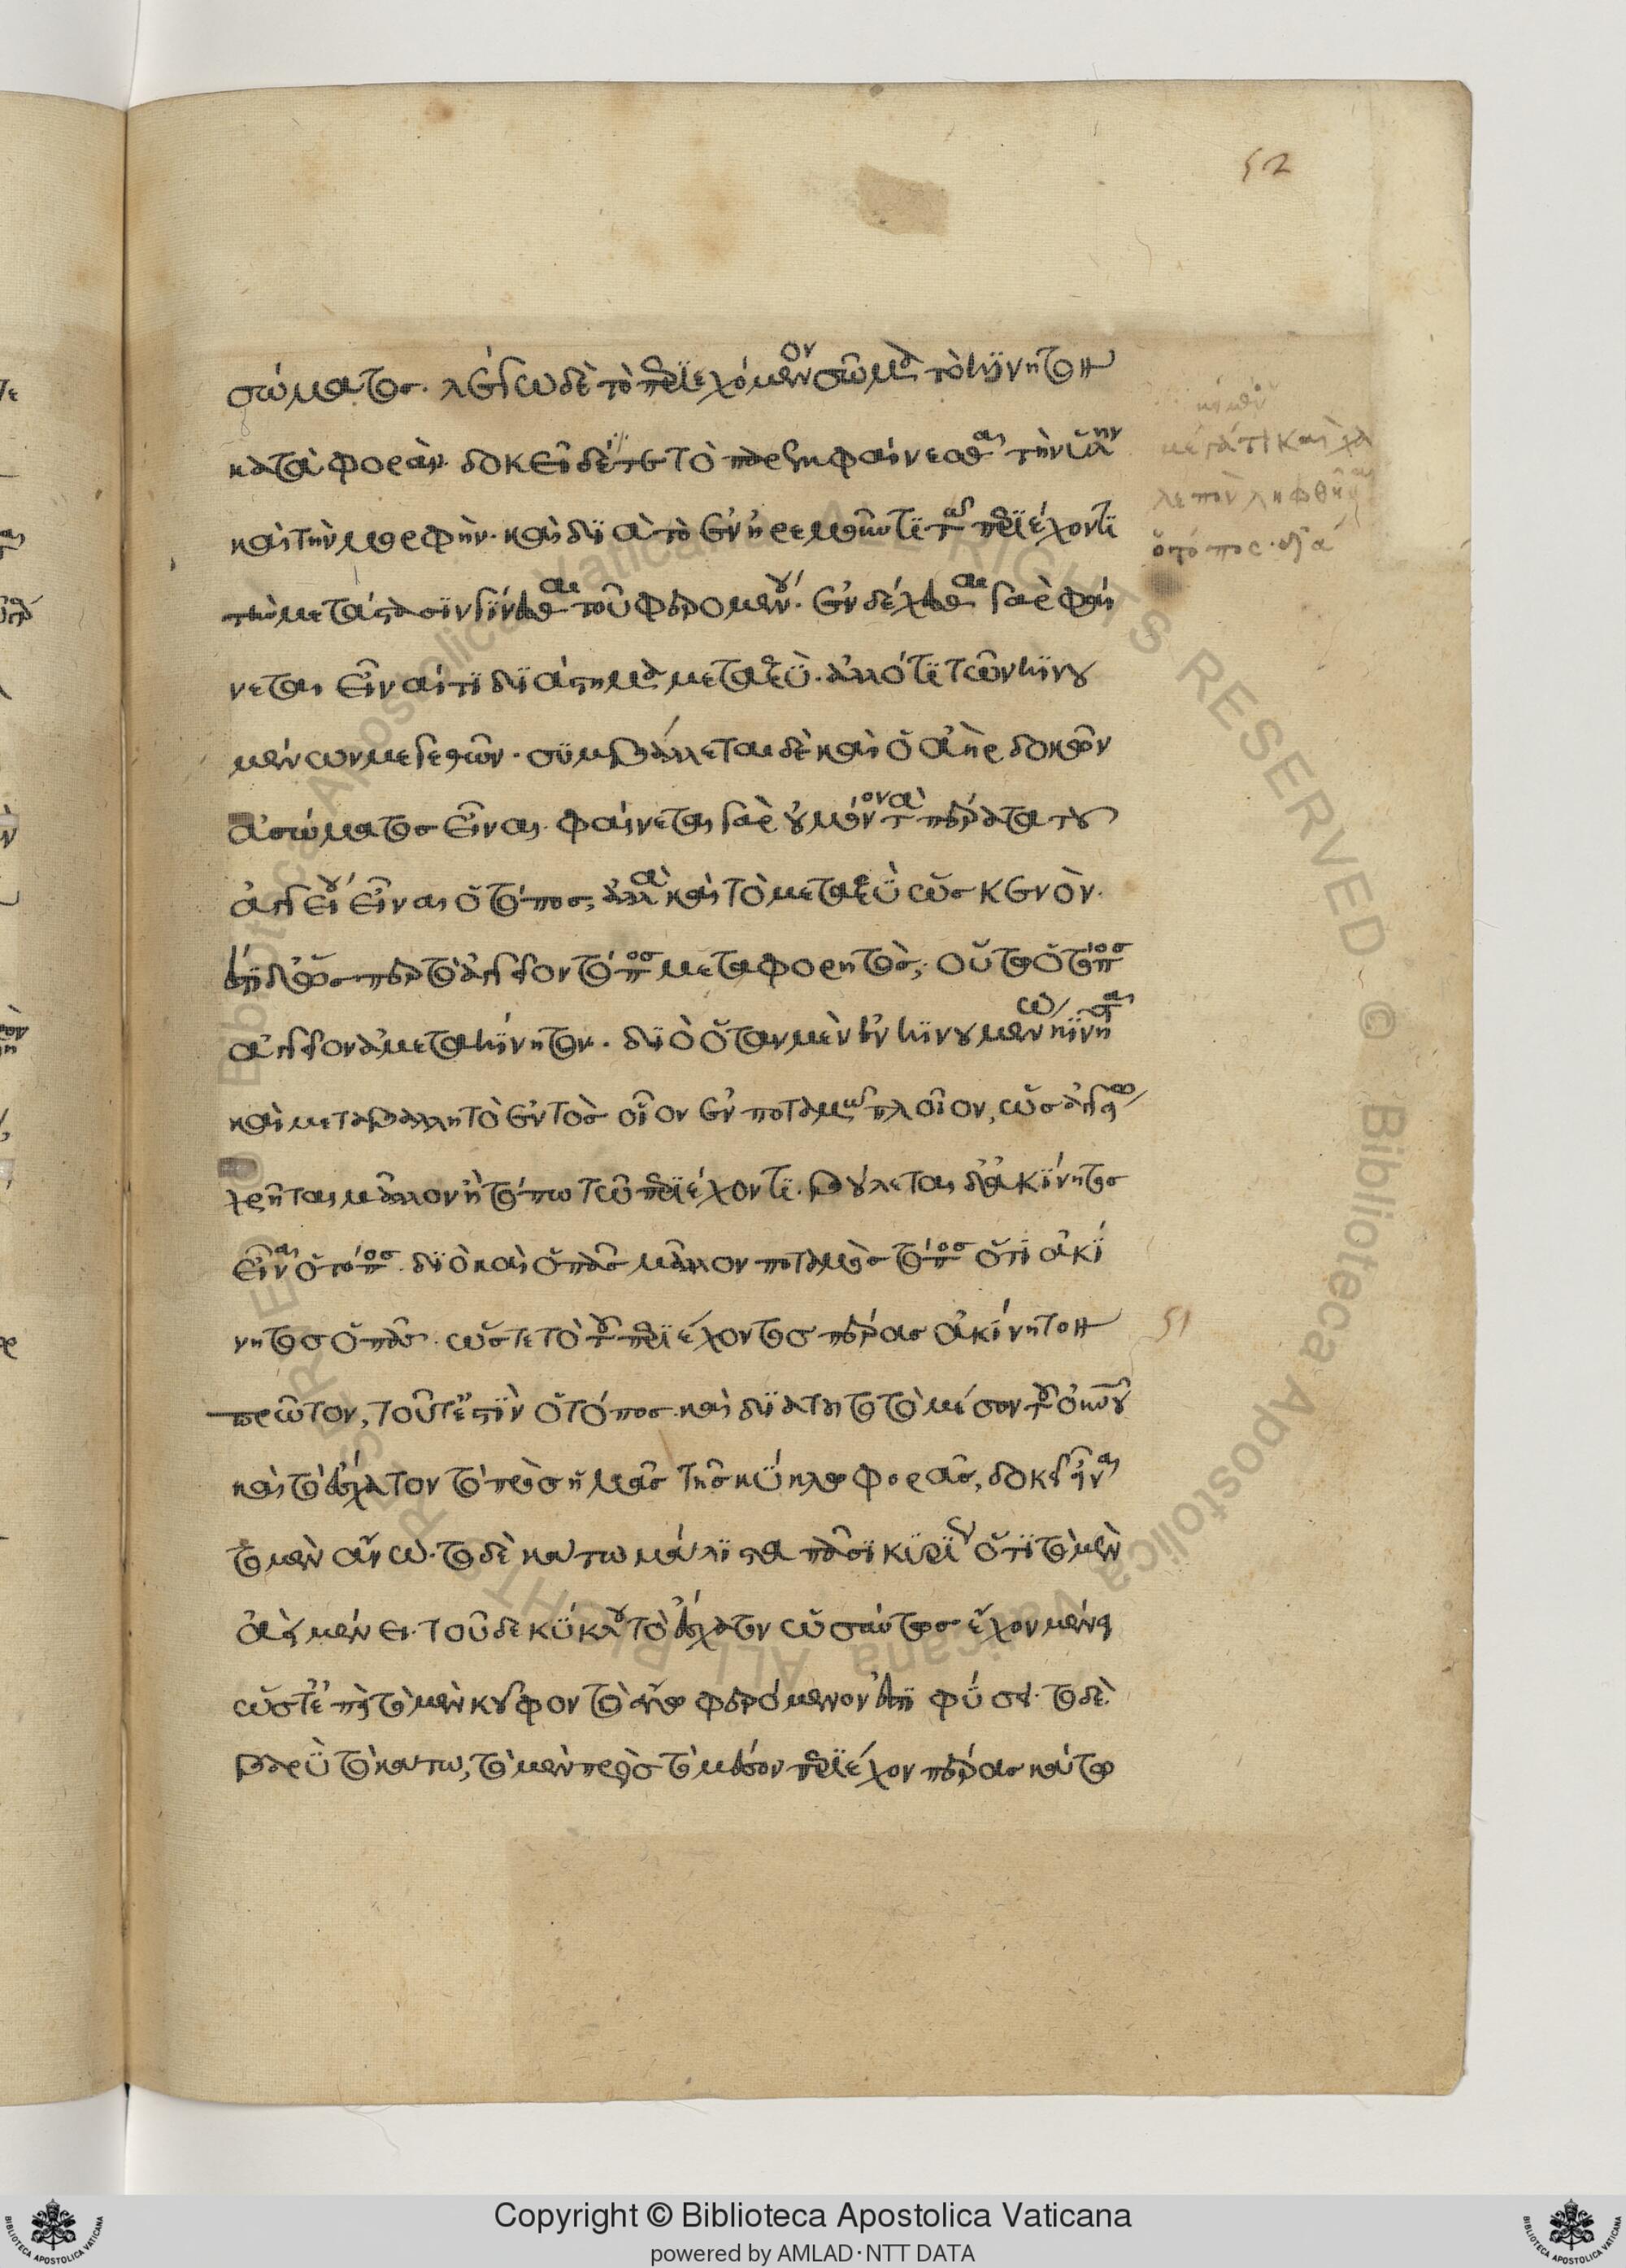 52
σώματος. λέγω δὲ τὸ περιεχόμενον σῶμα τὸ κινητὸν
κατὰ φορὰν. δοκεῖ δέ τε τὸ παρεμφαίνεσθαι τὴν ὕλην
καὶ τὴν μορφὴν. καὶ διὰ τὸ ἐν ἠρεμοῦντι τῶ περιέχοντι
τὴν μετάστασιν γίνεσθαι τοῦ φερομένου. ἐνδέχεσθαι γὰρ φαί
νεται εἶναί τι διάστημα μεταξὺ. ἄλλό τι τῶν κινου
μένων μεγεθῶν. συμβάλλεται δὲ καὶ ὁ ἀὴρ δοκῶν
ἀσώματος εἶναι. φαίνεται γὰρ οὐ μόνον τὰ πέρατα τοῦ
ἀγγείου εἶναι ὁ τόπος, ἀλλὰ καὶ τὸ μεταξὺ ὡς κενὸν.
ἔστι δ᾽ ὥσπερ τὸ ἀγγεῖον τόπος μεταφορητὸς, οὕτω ὁ τόπος
ἀγγεῖον ἀμετακίνητον. διὸ ὅταν μὲν ἐν κινουμένω κινῆται
καὶ μεταβάλλη τὸ ἐντὸς οἷον ἐν ποταμῶ πλοῖον, ὡς ἀγγείω
χρῆται μᾶλλον ἢ τόπω τῶ περιέχοντι. βούλεται δ᾽ ἀκίνητος
εἶναι ὁ τόπος. διὸ καὶ ὁ πᾶς μᾶλλον ποταμὸς τόπος ὅτι ἀκί
νητος ὁ πᾶς. ὥστε τὸ τοῦ περιέχοντος πέρας ἀκίνητον
51
πρῶτον, τοῦτ᾽ ἔστιν ὁ τόπος. καὶ διὰ τοῦτο τὸ μέσον τοῦ οὐρανοῦ
καὶ τὸ ἔσχατον τὸ πρὸς ἡμᾶς τῆς κύκλω φορᾶς, δοκεῖ εἶναι
τὸ μὲν ἄνω. τὸ δὲ κάτω μάλιστα πᾶσι κυρίου ὅτι τὸ μὲν
ἀεὶ μένει. τοῦ δὲ κύκλου τὸ ἔσχατον ὡσαύτως ἔχον μένει
ὥστ᾽ ἐπεὶ τὸ μὲν κοῦφον τὸ ἄνω φερόμενον ἐστὶ φύσει. τὸ δὲ
βαρὺ τὸ κάτω, τὸ μὲν πρὸς τὸ μέσον περιέχον πέρας κάτω
μέγα τι καὶ χα
λεπὸν ληφθῆναι
ὁ τόπος. διὰ
Copyright © Biblioteca Apostolica Vaticana
powered by AMLAD·NTT DATA